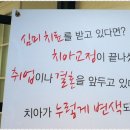 심미 치료를 받고 있다면?
치아교정이 끝나셨
취업이나 결혼을 앞두고 있다
치아가 누렇게 변색되